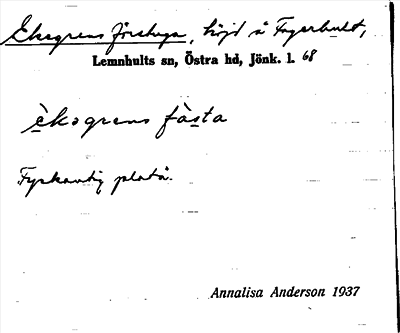 Ekegrens förstuga, höjd å Fagerhult,
Lemnhults sn, Östra hd, Jönk. l. 68
èkəgrens fàsta
Fyrkantig platå.
Annalisa Anderson 1937